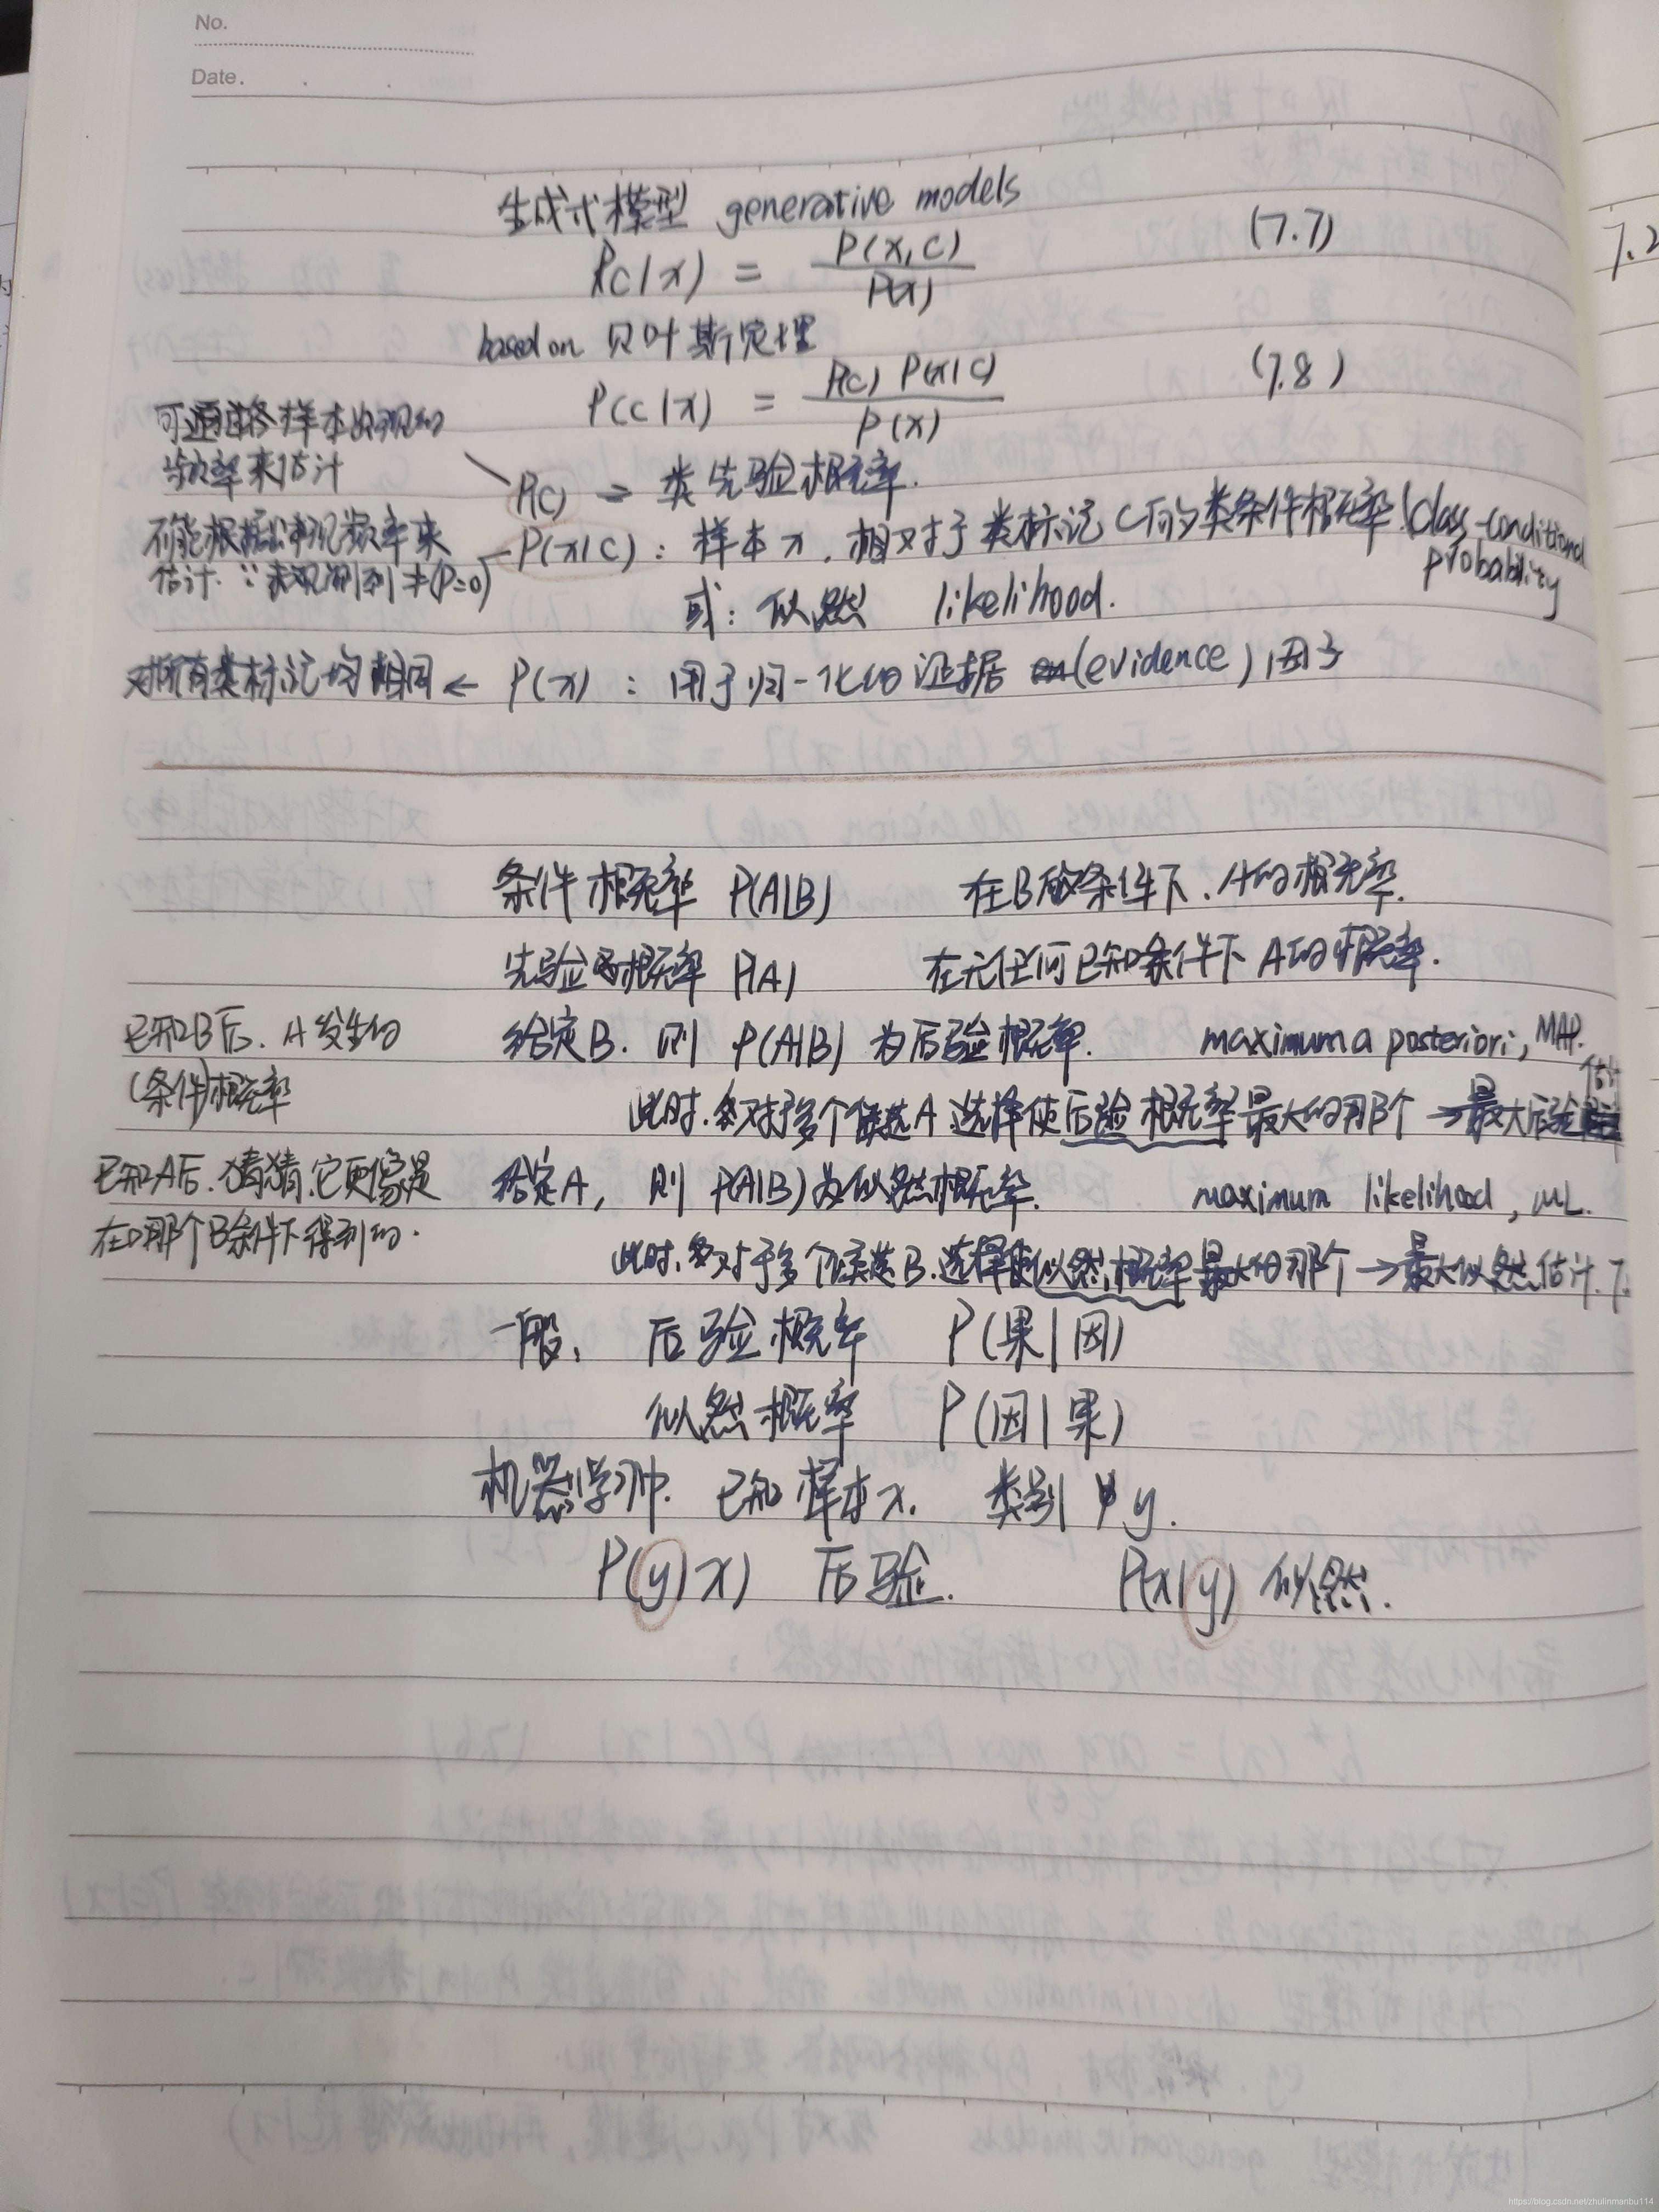 No.
Date.
生成式模型 generative models
P(c|x) = P(x,c) / P(x) (7.7)
based on 贝叶斯定理
P(c|x) = P(c) P(x|c) / P(x) (7.8)
可通过各样本出现的
频率来估计
P(c) = 类先验概率.
不能根据出现频率来
估计. ∵未观测到≠(P=0)
P(x|c): 样本x.相对于类标记C的类条件概率(class-conditional
probability
或: 似然 likelihood.
对所有类标记均相同 ← P(x): 用于归一化的证据(evidence)因子
7.2
条件概率 P(A|B) 在B的条件下.A的概率.
先验概率 P(A) 在无任何已知条件下A的概率.
已知B后.A发生的
(条件)概率
给定B.则P(A|B)为后验概率. maximum a posteriori, MAP.
此时.对于多个候选A选择使后验概率最大的那个→最大后验估计
已知A后.猜猜.它更像是
在哪个B条件下得到的.
给定A,则P(A|B)为似然概率. maximum likelihood, ML.
此时.对于多个候选B.选择使似然概率最大的那个→最大似然估计.7.
一般, 后验概率 P(果|因)
似然概率 P(因|果)
机器学习中.已知样本x. 类别y.
P(y|x) 后验. P(x|y) 似然.
https://blog.csdn.net/zhulinmanbu114